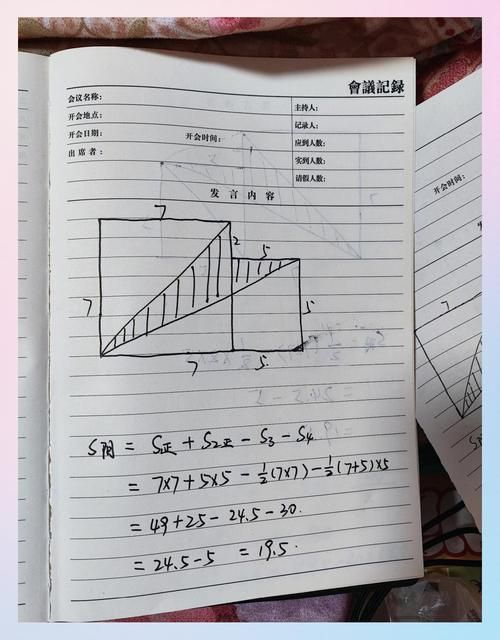 會議記録
会议名称：
主持人：
开会地点：
记录人：
开会日期：
开会时间：
应到人数：
出席者：
实到人数：
请假人数：
发言内容
7
2
5
7
5
7
5
S阴 = S正 + S2正 - S3 - S4
= 7×7 + 5×5 - 1/2(7×7) - 1/2(7+5)×5
= 49 + 25 - 24.5 - 30.
= 24.5 - 5 = 19.5.
开会时间：
7